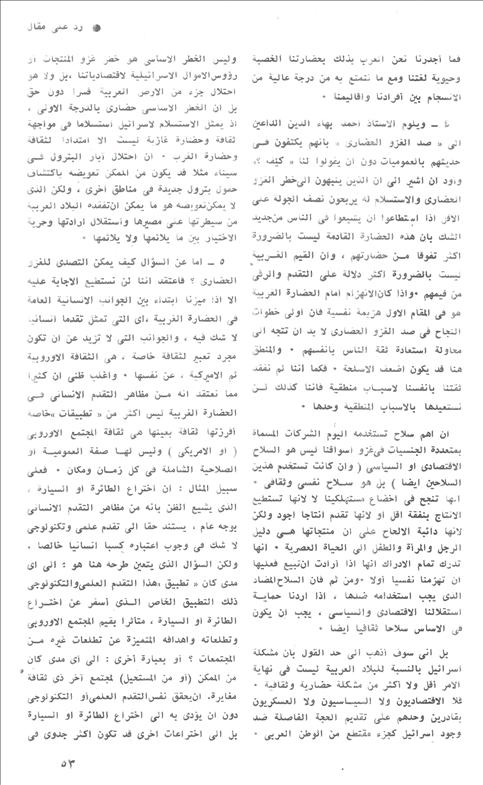 رد على مقال
فما أجدرنا نحن العرب بذلك بحضارتنا الخصبة
وحيوية لغتنا ومع ما نتمتع به من درجة عالية من
الانسجام بين أفرادنا وأقاليمنا ٠
ـ ويلوم الاستاذ أحمد بهاء الدين الداعين
الى « صد الغزو الحضارى » بأنهم يكتفون فى
حديثهم بالعموميات دون أن يقولوا لنا « كيف ؟ »
وأود أن أشير الى أن الذين ينبهون الى خطر الغزو
الحضارى والاستسلام له يربحون نصف الجولة على
الاقل اذا استطاعوا أن يشيعوا فى الناس من جديد
الشك بأن هذه الحضارة القادمة ليست بالضرورة
أكثر تفوقا من حضارتهم ، وان القيم الغربية
ليست بالضرورة أكثر دلالة على التقدم والرقى
من قيمهم ٠ واذا كان الانهزام أمام الحضارة الغربية
هو فى المقام الاول هزيمة نفسية فان أولى خطوات
النجاح فى صد الغزو الحضارى لا بد أن تتجه الى
محاولة استعادة ثقة الناس بأنفسهم ٠ والمنطق
هنا قد يكون أضعف الاسلحة ٠ فكما أننا لم نفقد
ثقتنا بأنفسنا لاسباب منطقية فاننا كذلك لن
نستعيدها بالاسباب المنطقية وحدها ٠
ان أهم سلاح تستخدمه اليوم الشركات المسماة
بمتعددة الجنسيات فى غزو أسواقنا ليس هو السلاح
الاقتصادى أو السياسى ( وان كانت تستخدم هذين
السلاحين أيضا ) بل هو سلاح نفسى وثقافى ٠
انها تنجح فى اخضاع مستهلكينا لا لانها تستطيع
الانتاج بنفقة أقل أو لانها تقدم انتاجا أجود ولكن
لانها دائبة الالحاح على أن منتجاتها هى دليل
الرجل والمرأة والطفل الى الحياة العصرية ٠ انها
تدرك تمام الادراك انها اذا أرادت ان تبيع فعليها
أن تهزمنا نفسيا أولا ٠ ومن ثم فان السلاح المضاد
الذى يجب استخدامه ضدها ، اذا أردنا حماية
استقلالنا الاقتصادى والسياسى ، يجب أن يكون
فى الاساس سلاحا ثقافيا أيضا ٠
بل انى سوف أذهب الى حد القول بأن مشكلة
اسرائيل بالنسبة للبلاد العربية ليست فى نهاية
الامر أقل ولا أكثر من مشكلة حضارية وثقافية ٠
فلا الاقتصاديون ولا السياسيون ولا العسكريون
بقادرين وحدهم على تقديم الحجة الفاصلة ضد
وجود اسرائيل كجزء مقتطع من الوطن العربى ٠
وليس الخطر الاساسى هو خطر غزو المنتجات أو
رؤوس الاموال الاسرائيلية لاقتصادياتنا ، بل ولا هو
احتلال جزء من الارض العربية قسرا دون حق
بل ان الخطر الاساسى حضارى بالدرجة الاولى ،
اذ يمثل الاستسلام لاسرائيل استسلاما فى مواجهة
ثقافة وحضارة غازية ليست الا امتدادا لثقافة
وحضارة الغرب ٠ ان احتلال آبار البترول فى
سيناء مثلا قد يكون من الممكن تعويضه باكتشاف
حقول بترول جديدة فى مناطق أخرى ، ولكن الذى
لا يمكن تعويضه هو ما يمكن ان تفقده البلاد العربية
من سيطرتها على مصيرها واستقلال ارادتها وحرية
الاختيار بين ما يلائمها ولا يلائمها ٠
٥ ـ أما عن السؤال كيف يمكن التصدى للغزو
الحضارى ؟ فأعتقد أننا لن نستطيع الاجابة عليه
الا اذا ميزنا ابتداء بين الجوانب الانسانية العامة
فى الحضارة الغربية ، أى التى تمثل تقدما انسانيا
لا شك فيه ، والجوانب التى لا تزيد عن ان تكون
مجرد تعبير لثقافة خاصة ، هى الثقافة الاوروبية
ثم الاميركية ، عن نفسها ٠ وأغلب ظنى ان كثيرا
مما نعتقد انه من مظاهر التقدم الانسانى فى
الحضارة الغربية ليس أكثر من « تطبيقات » خاصة
أفرزتها ثقافة بعينها هى ثقافة المجتمع الاوروبى
( أو الامريكى ) وليس لها صفة العمومية أو
الصلاحية الشاملة فى كل زمان ومكان ٠ فعلى
سبيل المثال : ان اختراع الطائرة أو السيارة ،
الذى يشيع الظن بأنه من مظاهر التقدم الانسانى
بوجه عام ، يستند حقا الى تقدم علمى وتكنولوجى
لا شك فى وجوب اعتباره كسبا انسانيا خالصا ،
ولكن السؤال الذى يتعين طرحه هنا هو : الى أى
مدى كان « تطبيق » هذا التقدم العلمى والتكنولوجى
ذلك التطبيق الخاص الذى أسفر عن اختراع
الطائرة أو السيارة ، متأثرا بقيم المجتمع الاوروبى
وتطلعاته وأهدافه المتميزة عن تطلعات غيره من
المجتمعات ؟ أو بعبارة أخرى : الى أى مدى كان
من الممكن ( أو من المستحيل ) لمجتمع آخر ذى ثقافة
مغايرة ، ان يحقق نفس التقدم العلمى أو التكنولوجى
دون ان يؤدى به الى اختراع الطائرة أو السيارة
بل الى اختراعات أخرى قد تكون أكثر جدوى فى
٥٣